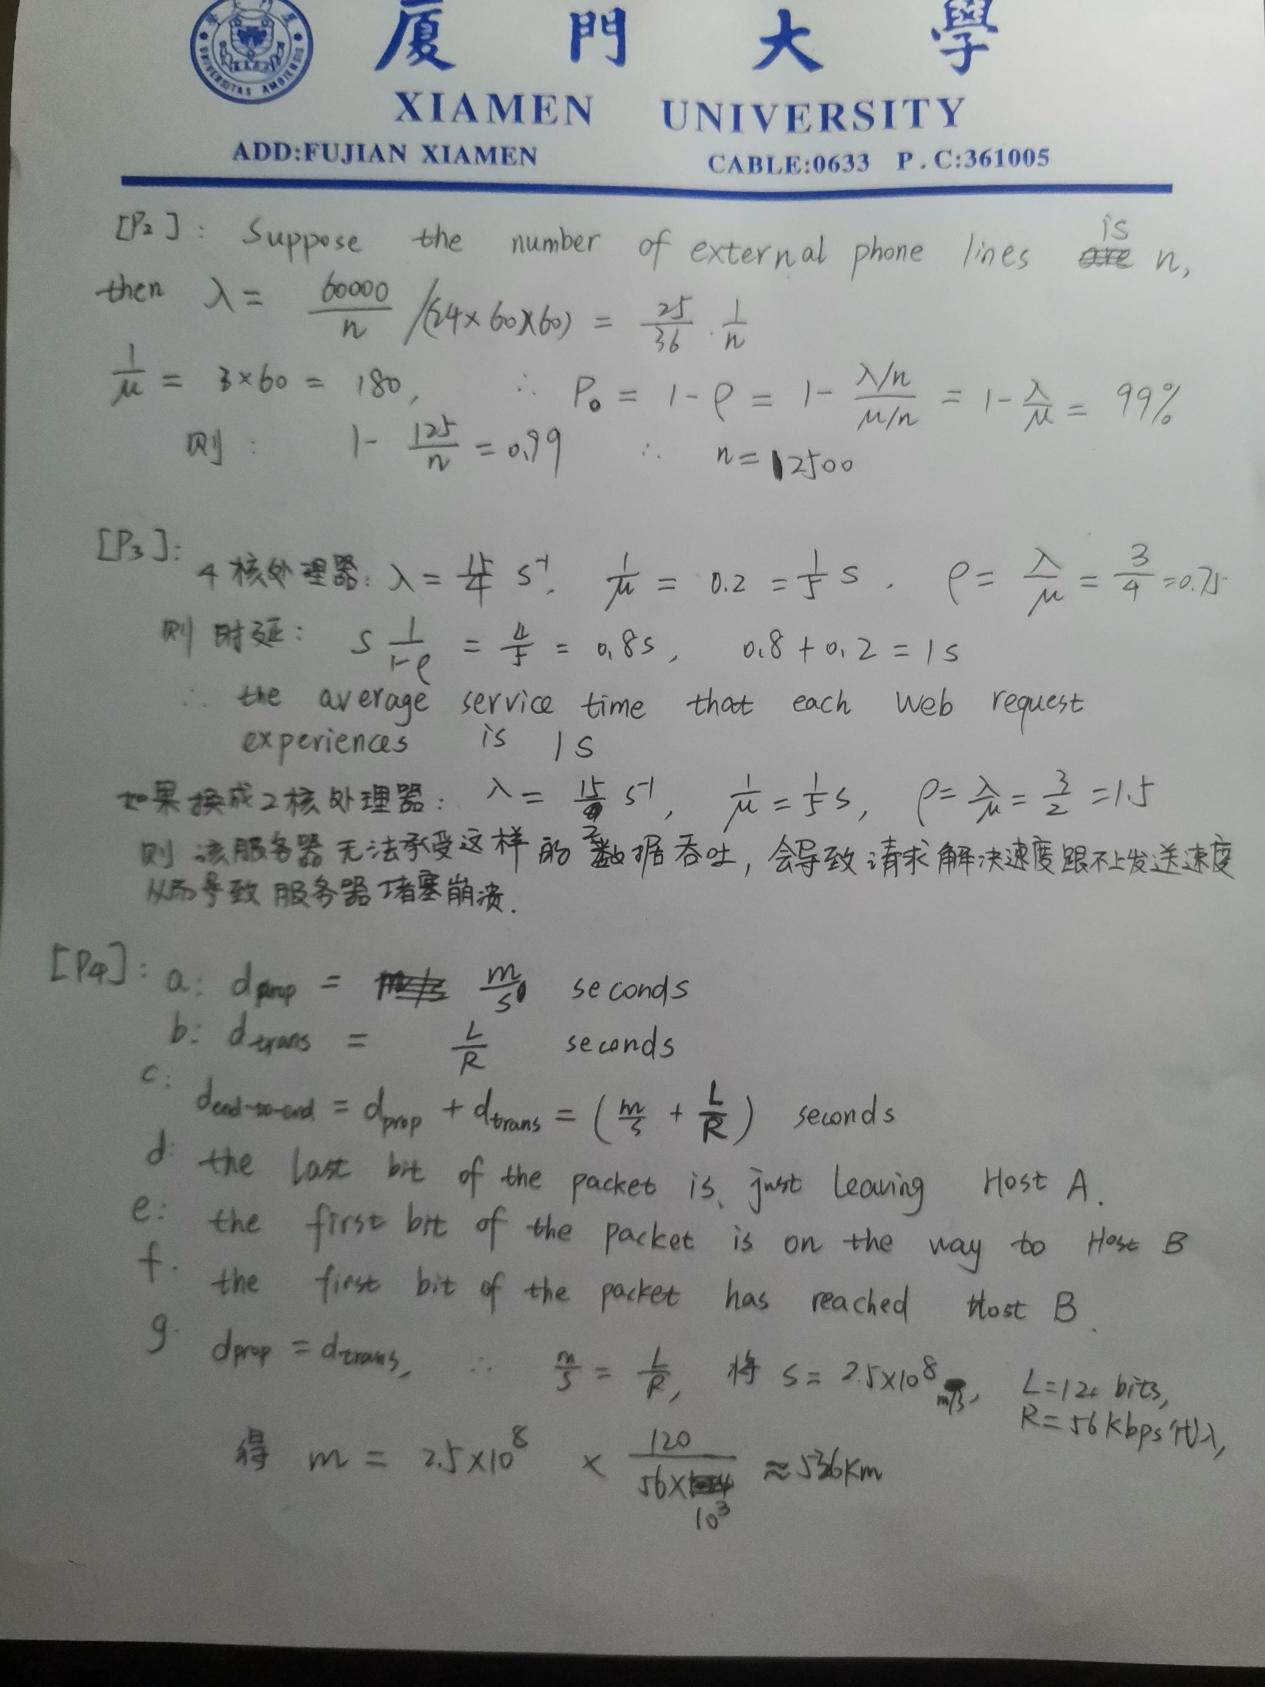 廈門大學
XIAMEN UNIVERSITY
ADD:FUJIAN XIAMEN CABLE:0633 P.C:361005
[P2]: Suppose the number of external phone lines is n,
then λ = 60000/n /(24×60×60) = 25/36 · 1/n
1/μ = 3×60 = 180, ∴ P₀ = 1-ρ = 1- (λ/n)/(μ/n) = 1- λ/μ = 99%
则: 1- 125/n = 0.99 ∴ n = 12500
[P3]: 4核处理器: λ = 15/4 s⁻¹, 1/μ = 0.2 = 1/5 s. ρ = λ/μ = 3/4 = 0.75
则时延: S 1/(1-ρ) = 4/5 = 0.8s, 0.8+0.2 = 1s
∴ the average service time that each Web request
experiences is 1s
如果换成2核处理器: λ = 15/2 s⁻¹, 1/μ = 1/5 s, ρ = λ/μ = 3/2 = 1.5
则该服务器无法承受这样的数据吞吐, 会导致请求解决速度跟不上发送速度
从而导致服务器堵塞崩溃.
[P4]: a: d_prop = m/s seconds
b: d_trans = L/R seconds
c: d_end-to-end = d_prop + d_trans = (m/s + L/R) seconds
d: the last bit of the packet is just leaving Host A.
e: the first bit of the packet is on the way to Host B
f. the first bit of the packet has reached Host B.
g. d_prop = d_trans, ∴ m/s = L/R, 将 s = 2.5×10⁸ m/s, L=120 bits,
R=56Kbps代入,
得 m = 2.5×10⁸ × 120/(56×10³) ≈ 536Km